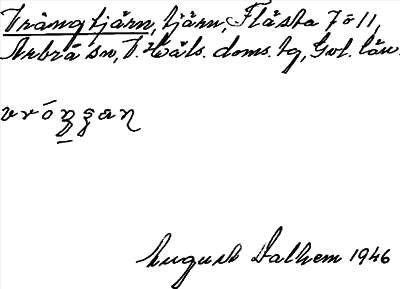 Vrångtjärn, tjärn, Flästa 7 o 11,
Arbrå sn, V. Häls. doms. tg, Gvl. län.
August Dalhem 1946